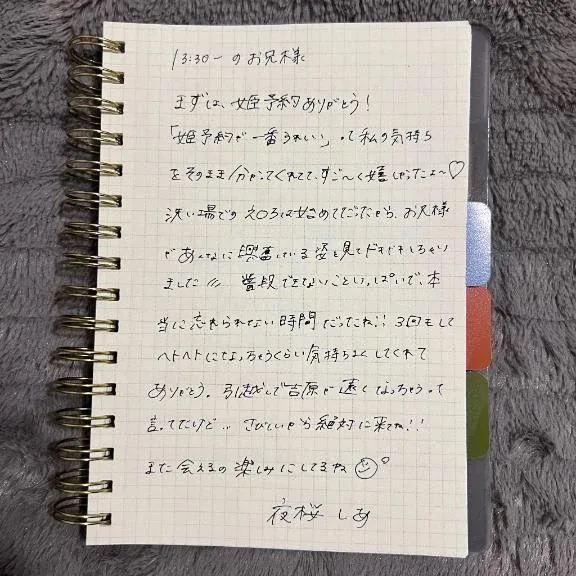 13:30〜のお兄様
まずは、姫予約ありがとう！
「姫予約が一番うれしい」って私の気持ち
をそのまま分かってくれてて、すご〜く嬉しかったよ〜♡
洗い場でのエロは始めてだったから、お兄様
があんなに興奮している姿を見てドキドキしちゃい
ました〃 普段できないこといっぱいで、本
当に忘れられない時間だったね!! 3回もして
ヘトヘトになっちゃうくらい気持ちよくしてくれて
ありがとう。引越しで吉原が遠くなっちゃうって
言ってたけど.. さびしいから絶対に来てね!!
また会えるの楽しみにしてるね☺
夜桜しあ